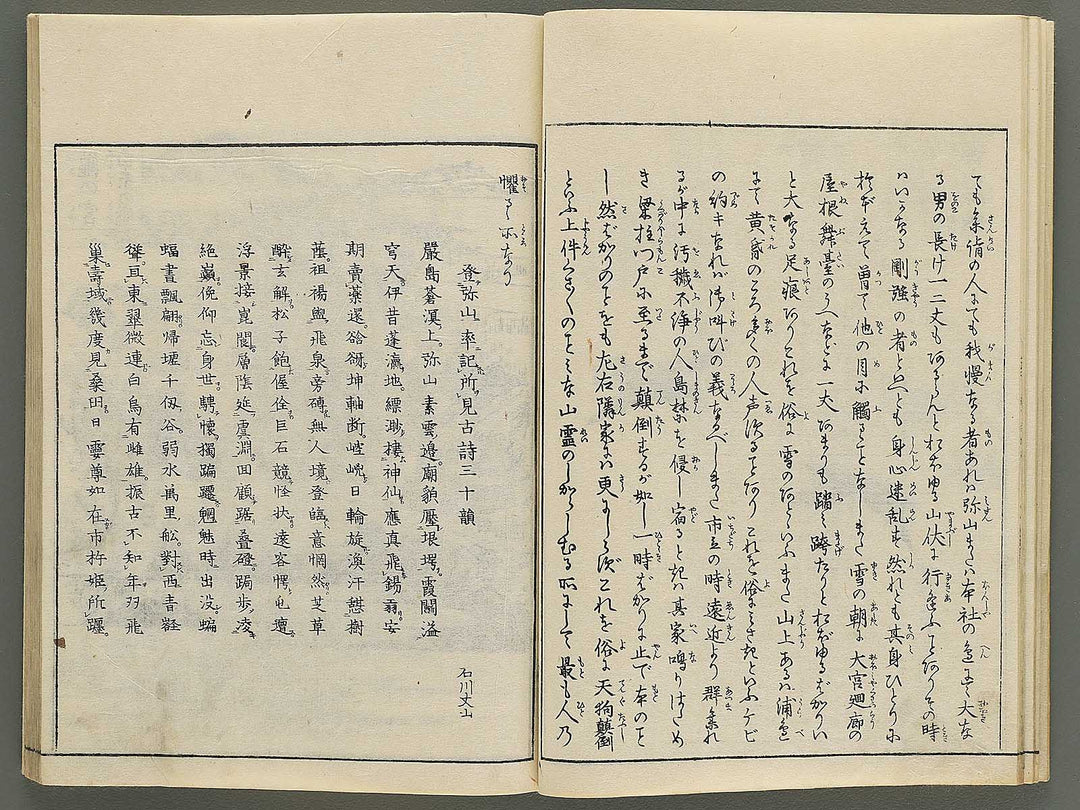 ても参詣の人にても我慢なる者あれハ弥山または本社の邊にて大な
る男の長け一二丈もあらんとおぼゆる山伏に行逢ふことありその時
ハいかなる剛強の者といへども身心迷乱す然れども其身ひとりに
於ぼえて曽て他の目に觸ることなしまた雪の朝に大宮廻廊の
屋根舞臺のうへなどに一丈あまりも踏み跨たりとおぼゆるばかりい
と大なる足痕ありこれを俗に雪のあといふまた山上あるハ浦邊
にて黄昏のころ多くの人声することありこれを俗に
の約キなれハ御叫びの義なるべしまた市立の時遠近より群集れ
るが中に汚穢不浄の人島禁を侵し宿るときハ其家鳴りはため
き梁柱門戸に至るまで顛倒するが如し一時ばかりに止で本のご
とし然ばかりのことをも左右隣家にハ更にしらずこれを俗に天狗顛倒
といふ上件くさぐさのことみな山霊のしからしむる所にして最も人乃
懼るゝ所なり
登弥山率記所見古詩三十韻
石川丈山
嚴島蒼溟上弥山素雲邊廟貌壓垠堮霞關溢
穹天伊昔蓬瀛地縹渺棲神仙應真飛錫翥安
期賣藥還谽谺坤軸断崆峴日輪旋渙汗憇樹
蔭袒裼盥飛泉旁礴無人境登臨意惘然芝草
酔玄解松子飽偓佺巨石競怪抉遠客愕屯邅
浮景接崑閬層陰延虞淵回顧踞畳磴跼歩凌
絶巓俛仰忘身世騁懐獨蹁躚魍魅時出没蝙
蝠晝飄翩帰堙千仭谷弱水萬里舩對西青嶔
聳亘東翠微連白烏有雌雄振古不知年羽飛
巣壽域幾度見桑田曰霊尊如在市杵姫所躔